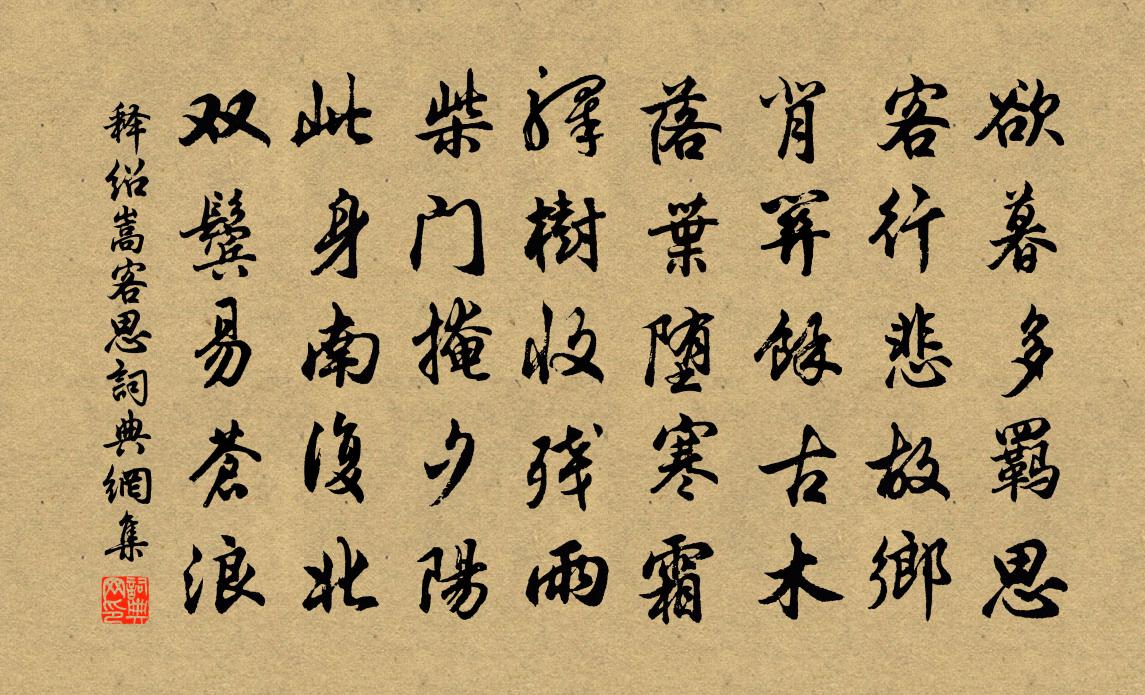 欲暮多羈思
客行悲故鄉
肖開餘古木
落葉堕寒霜
驛樹收残雨
柴门掩夕陽
此身南復北
双鬢易蒼浪
释绍嵩客思詞典網集
詞典
网印